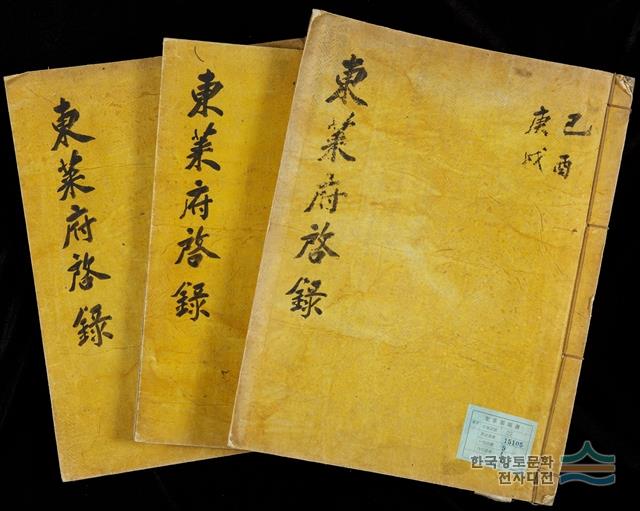 東萊府啓錄
東萊府啓錄
東萊府啓錄
己酉
庚戌
15105
한국향토문화
전자대전